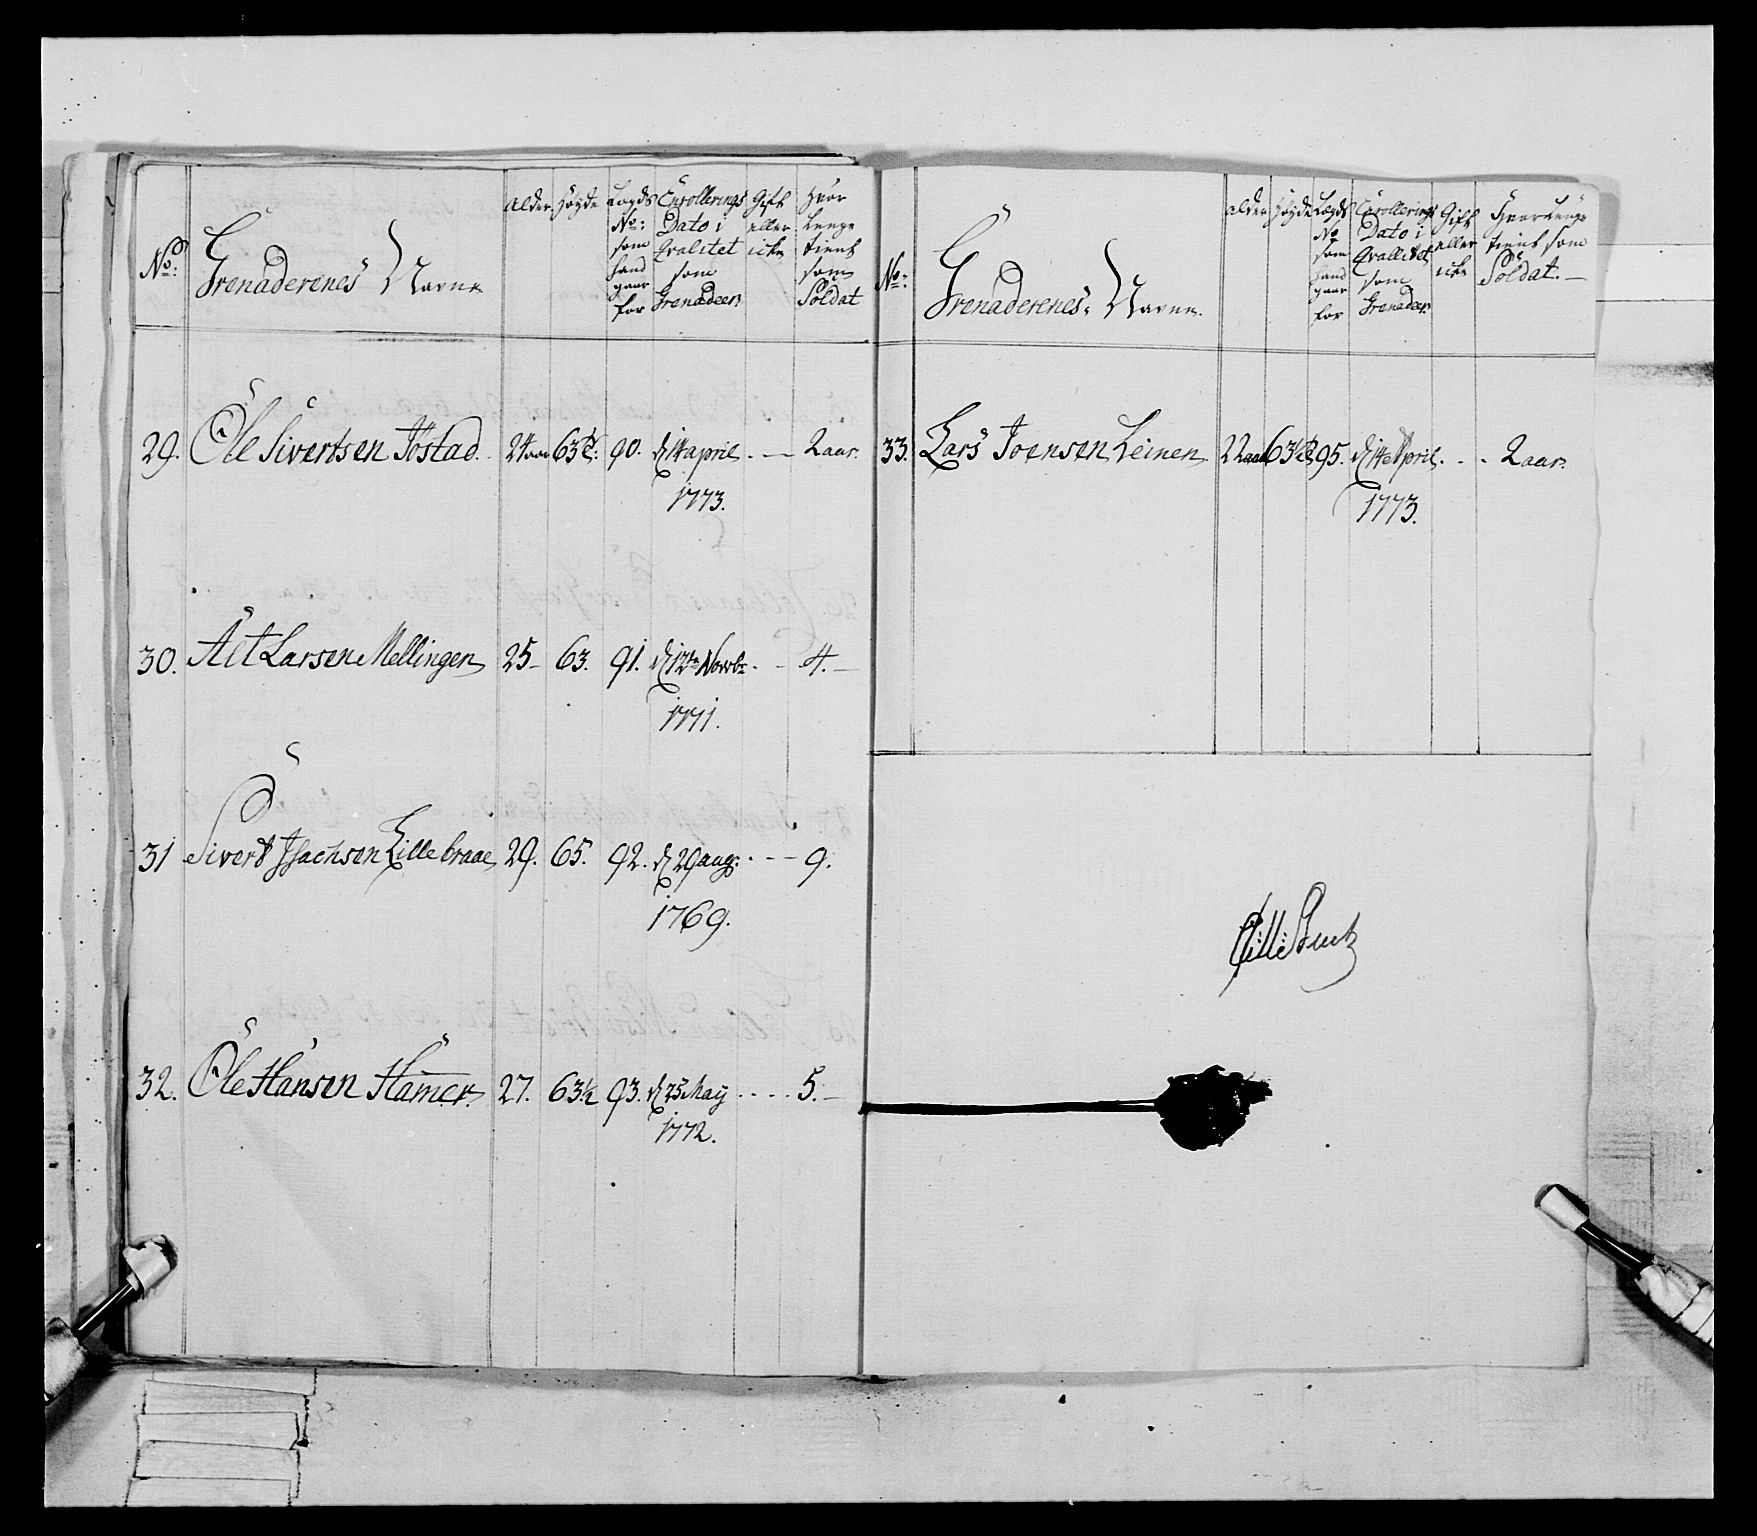 No: Grenaderenes Navne Alder Høyde Lægds No: som hand gaar for Enrollerings Dato i Qvalitet som Grenadeer Gift eller icke Hvor lenge tient som Soldat
29. Ole Sivertsen Föstad. 24 aar 63 90. d 14 april - 2 aar.
1773.
30. Alt Larsen Mellingen 25 - 63. 91. d 12te Novbr. - - 4. -
1771.
31 Sivert Isachsen Lillebraae 29. 65. 92. d 29 aug: - - - 9.
1769.
32. Ole Hansen Ham̄er. 27. 63½ 93. d 25 May - - - - 5. -
1772.
No: Grenaderenes Navne. Alder Høyde Lægds No som hand gaar for Enrollerings Dato i Qvallitet som Grenadeer Gift eller icke Hvor lenge tient som Soldat. -
33. Lars Joensen Leinen 22 aar 63½ 95. d 14 April. - - 2 aar.
1773.